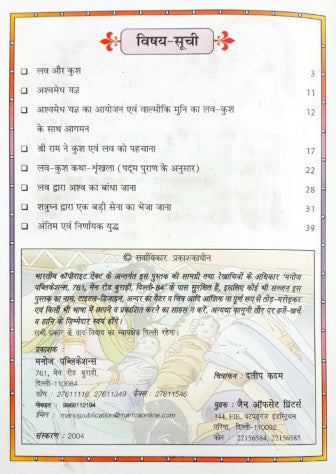 विषय-सूची
❑ लव और कुश 3
❑ अश्वमेध यज्ञ 11
❑ अश्वमेध यज्ञ का आयोजन एवं वाल्मीकि मुनि का लव-कुश 12
के साथ आगमन
❑ श्री राम ने कुश एवं लव को पहचाना 17
❑ लव-कुश कथा-श्रृंखला (पद्म पुराण के अनुसार) 22
❑ लव द्वारा अश्व का बांधा जाना 28
❑ शत्रुघ्न द्वारा एक बड़ी सेना का भेजा जाना 31
❑ अंतिम एवं निर्णायक युद्ध 39
© सर्वाधिकार प्रकाशकाधीन
भारतीय कॉपीराइट ऐक्ट के अन्तर्गत इस पुस्तक की सामग्री तथा रेखाचित्रों के अधिकार 'मनोज
पब्लिकेशन्स, 761, मेन रोड बुराड़ी, दिल्ली-84' के पास सुरक्षित हैं, इसलिए कोई भी सज्जन इस
पुस्तक का नाम, टाइटल-डिजाइन, अन्दर का मैटर व चित्र आदि आंशिक या पूर्ण रूप से तोड़-मरोड़कर
एवं किसी भी भाषा में छापने व प्रकाशित करने का साहस न करें, अन्यथा कानूनी तौर पर हर्जे-खर्चे
व हानि के जिम्मेदार स्वयं होंगे।
सभी प्रकार के वाद-विवाद का न्यायक्षेत्र दिल्ली रहेगा।
प्रकाशक :
मनोज पब्लिकेशन्स
761, मेन रोड बुराड़ी,
दिल्ली-110084
फोन : 27611116, 27611349
मोबाइल : 9868112194
ईमेल : manojpublication@mantraonline.com
संस्करण : 2004
चित्रांकन : दलीप कदम
मुद्रक : जैन ऑफसेट प्रिंटर्स
344, FIE, पटपड़गंज इंडस्ट्रियल
एरिया, दिल्ली-110092
फोन : 22156584, 22156585